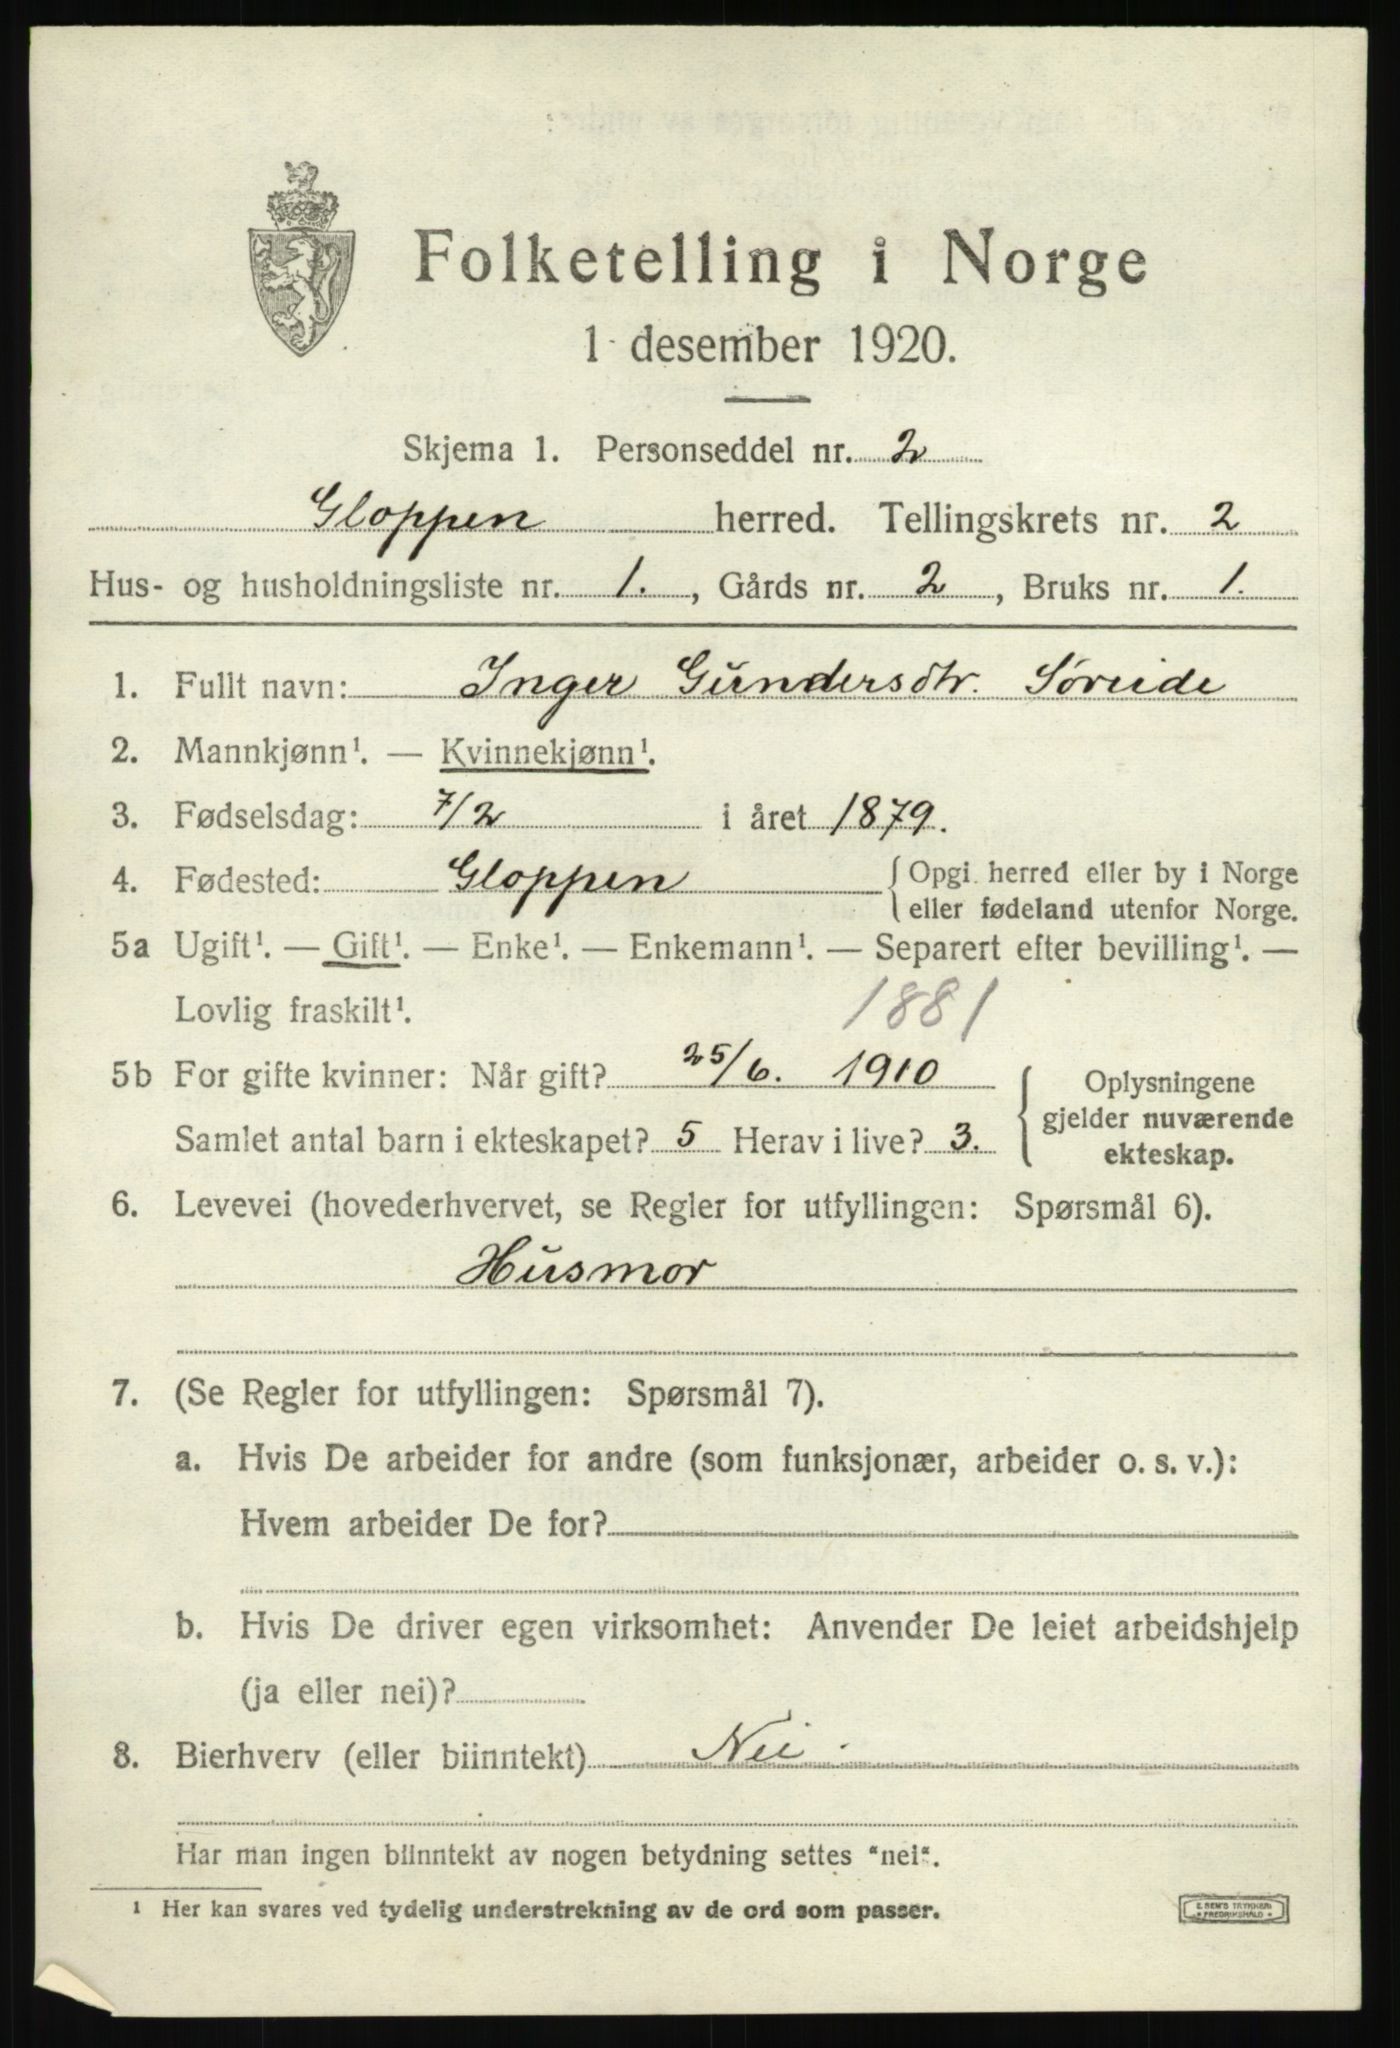 Folketelling i Norge
1 desember 1920.
Skjema 1. Personseddel nr. 2
Gloppen herred. Tellingskrets nr. 2
Hus- og husholdningsliste nr. 1., Gårds nr. 2, Bruks nr. 1.
1. Fullt navn: Inger Gundersdtr. Søreide
2. Mannkjønn¹. — Kvinnekjønn¹.
3. Fødselsdag: 7/2 i året 1879.
4. Fødested: Gloppen { Opgi herred eller by i Norge
eller fødeland utenfor Norge.
5a Ugift¹. — Gift¹. — Enke¹. — Enkemann¹. — Separert efter bevilling¹. —
Lovlig fraskilt¹.
1881
5b For gifte kvinner: Når gift? 25/6. 1910
Samlet antal barn i ekteskapet? 5 Herav i live? 3.
{ Oplysningene
gjelder nuværende
ekteskap.
6. Levevei (hovederhvervet, se Regler for utfyllingen: Spørsmål 6).
Husmor
7. (Se Regler for utfyllingen: Spørsmål 7).
a. Hvis De arbeider for andre (som funksjonær, arbeider o. s. v.):
Hvem arbeider De for?
b. Hvis De driver egen virksomhet: Anvender De leiet arbeidshjelp
(ja eller nei)?
8. Bierhverv (eller biinntekt) Nei
Har man ingen biinntekt av nogen betydning settes "nei".
¹ Her kan svares ved tydelig understrekning av de ord som passer.
E. SEM'S TRYKKERI
FREDRIKSHALD